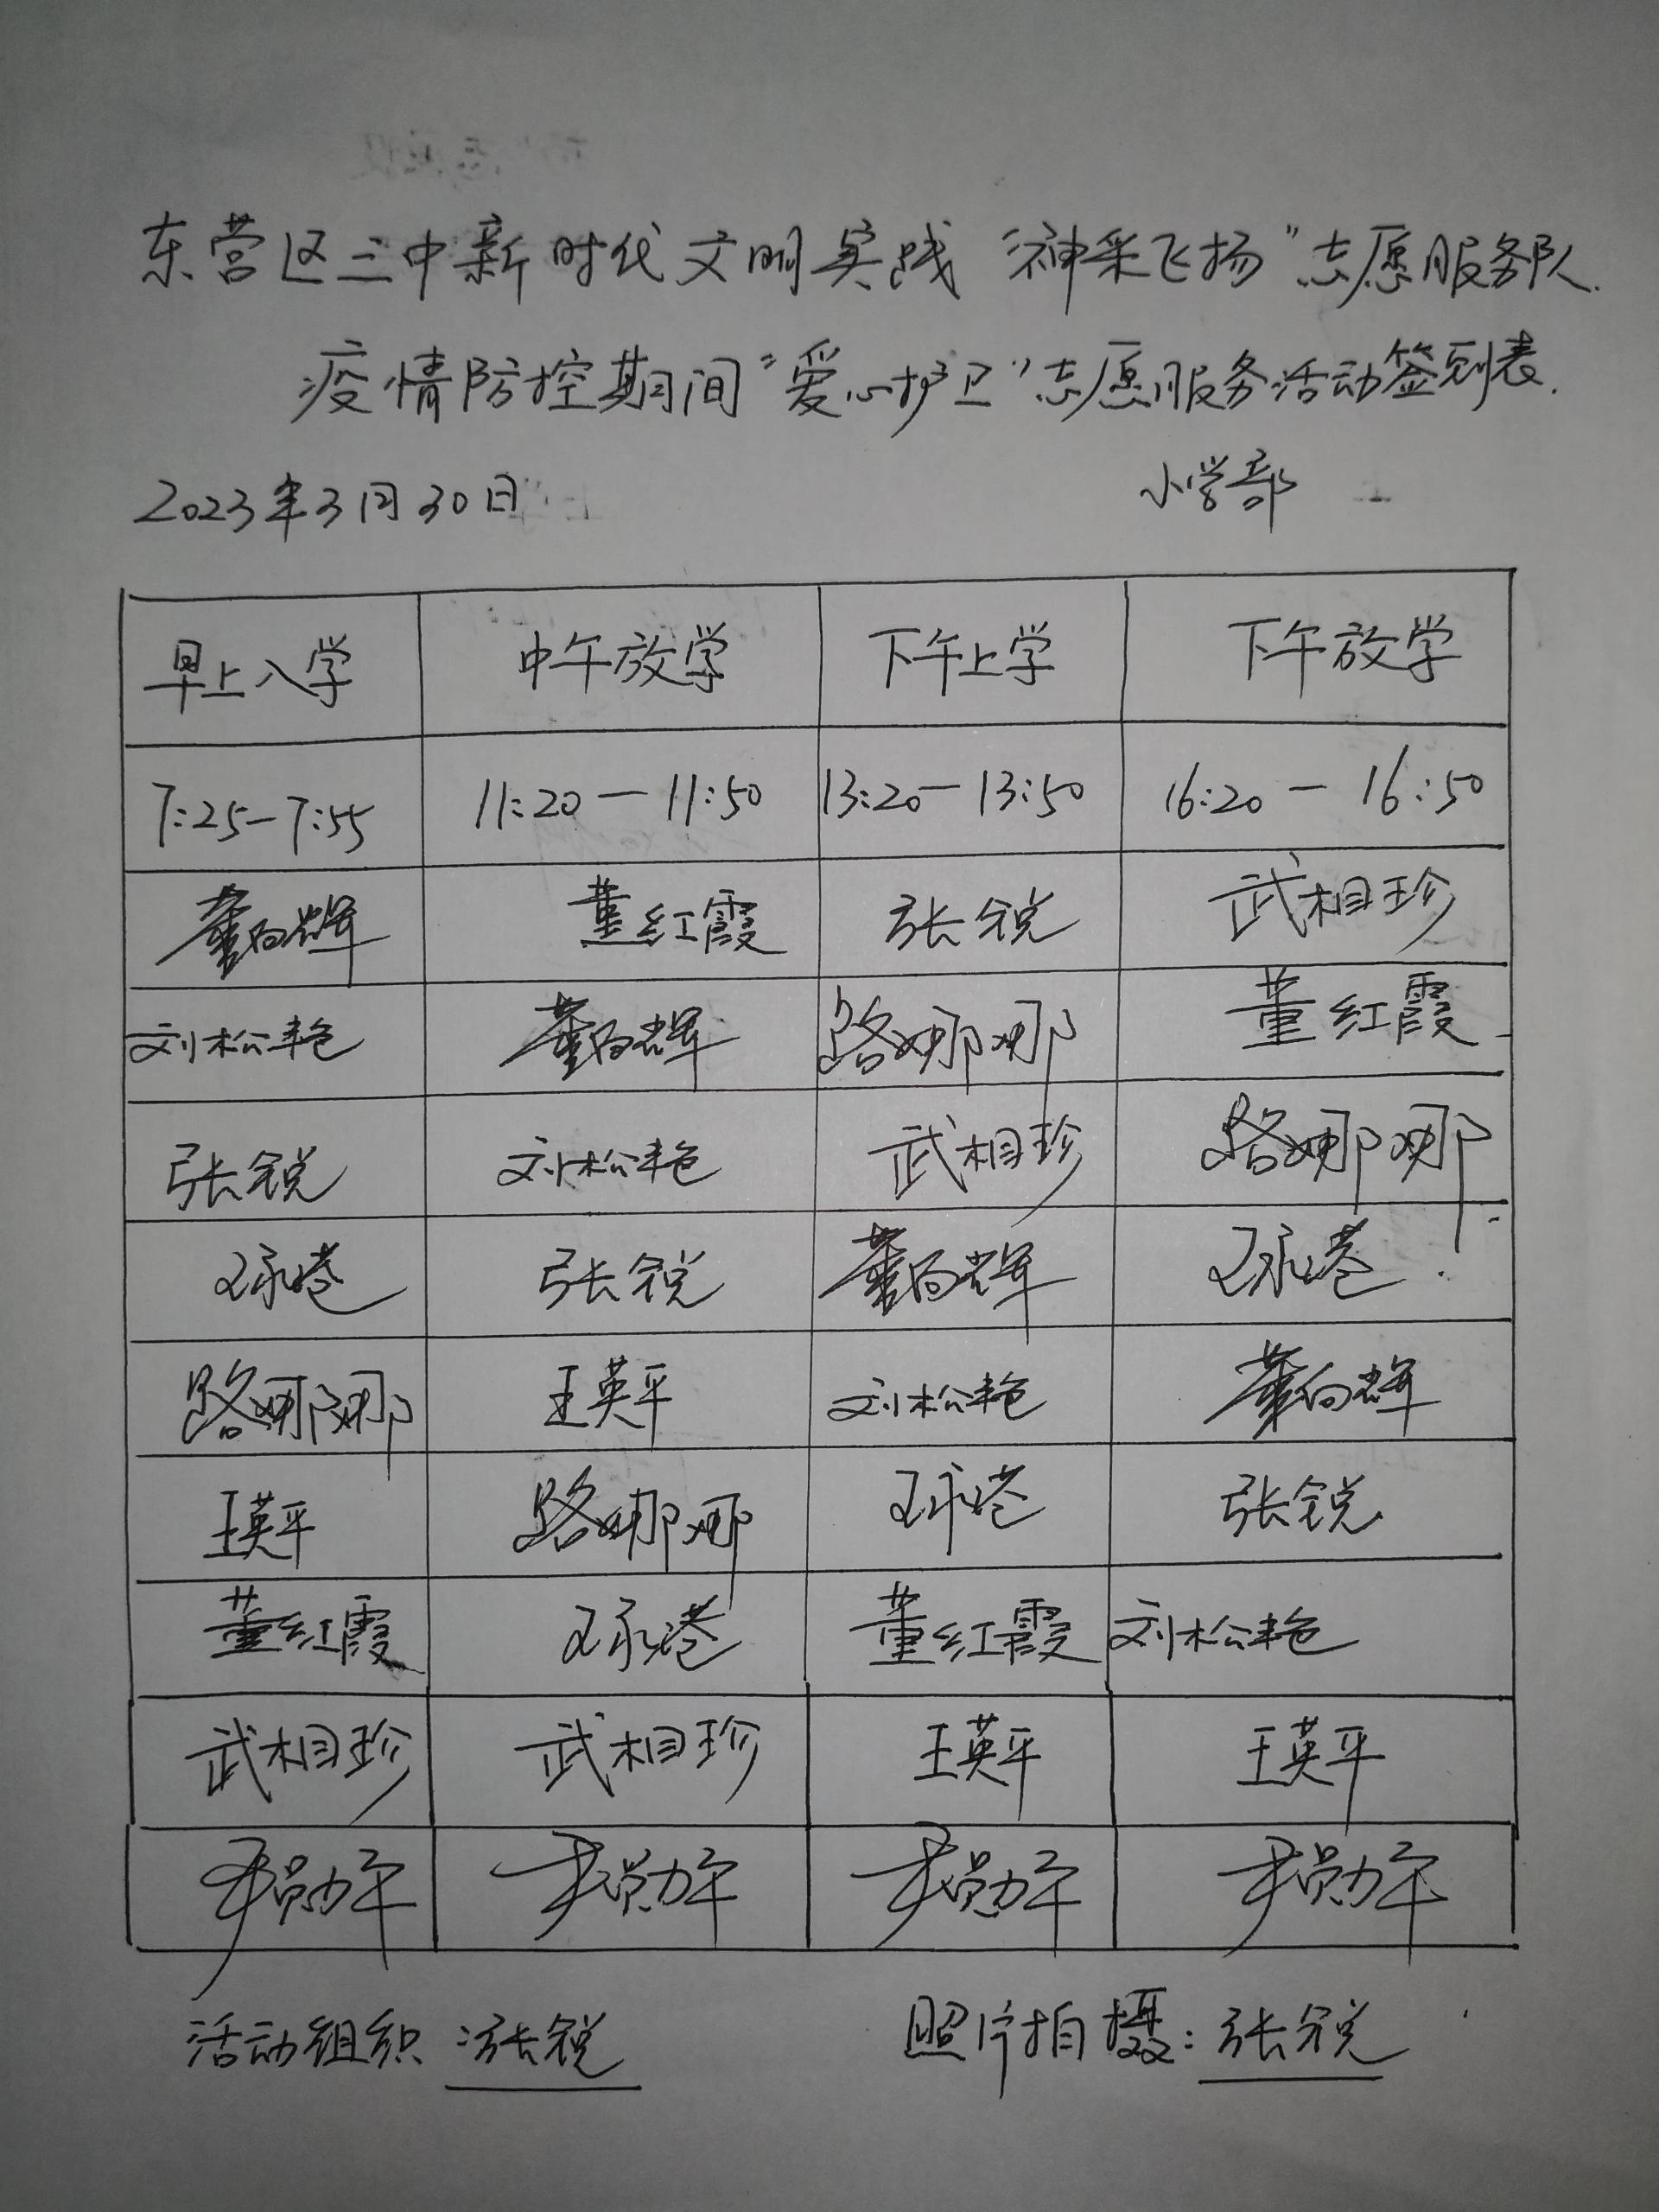 东营区三中新时代文明实践“神采飞扬”志愿服务队
疫情防控期间“爱心护卫”志愿服务活动签到表
2023年3月30日 小学部
早上入学 中午放学 下午上学 下午放学
7:25-7:55 11:20-11:50 13:20-13:50 16:20-16:50
董向辉 董红霞 张锐 武相珍
刘松艳 董向辉 路娜娜 董红霞
张锐 刘松艳 武相珍 路娜娜
张锐 董向辉
路娜娜 王英平 刘松艳 董向辉
王英平 路娜娜 张锐
董红霞 董红霞 刘松艳
武相珍 武相珍 王英平 王英平
活动组织:张锐 照片拍摄:张锐